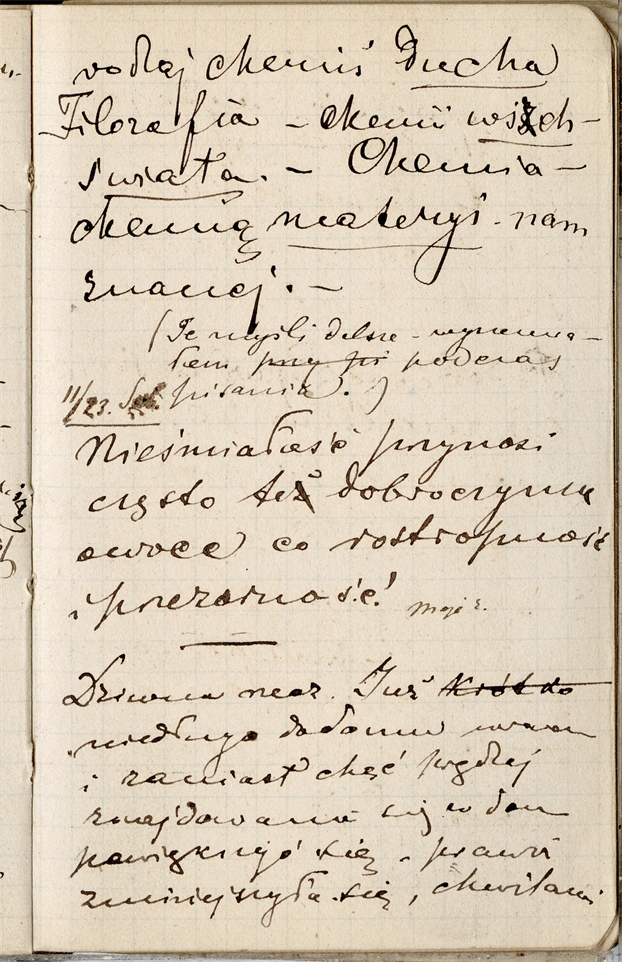 rodzaj chemiś Ducha
Filozofia – chemii wszech-
świata. – Chemia –
chemią materyi nam
znanej. –
(Te myśli dalsze
podczas
pisania.)
11/23.
Nieśmiałość przynosi
często też dobroczynne
owoce co roztropność
i przezorność!
Dziwna rzecz. Już
niedługo do domu wracam
i zamiast chęć prędzej
znajdowania się w dom
powiększyć się, prawie
zmniejszyła się, chwilami